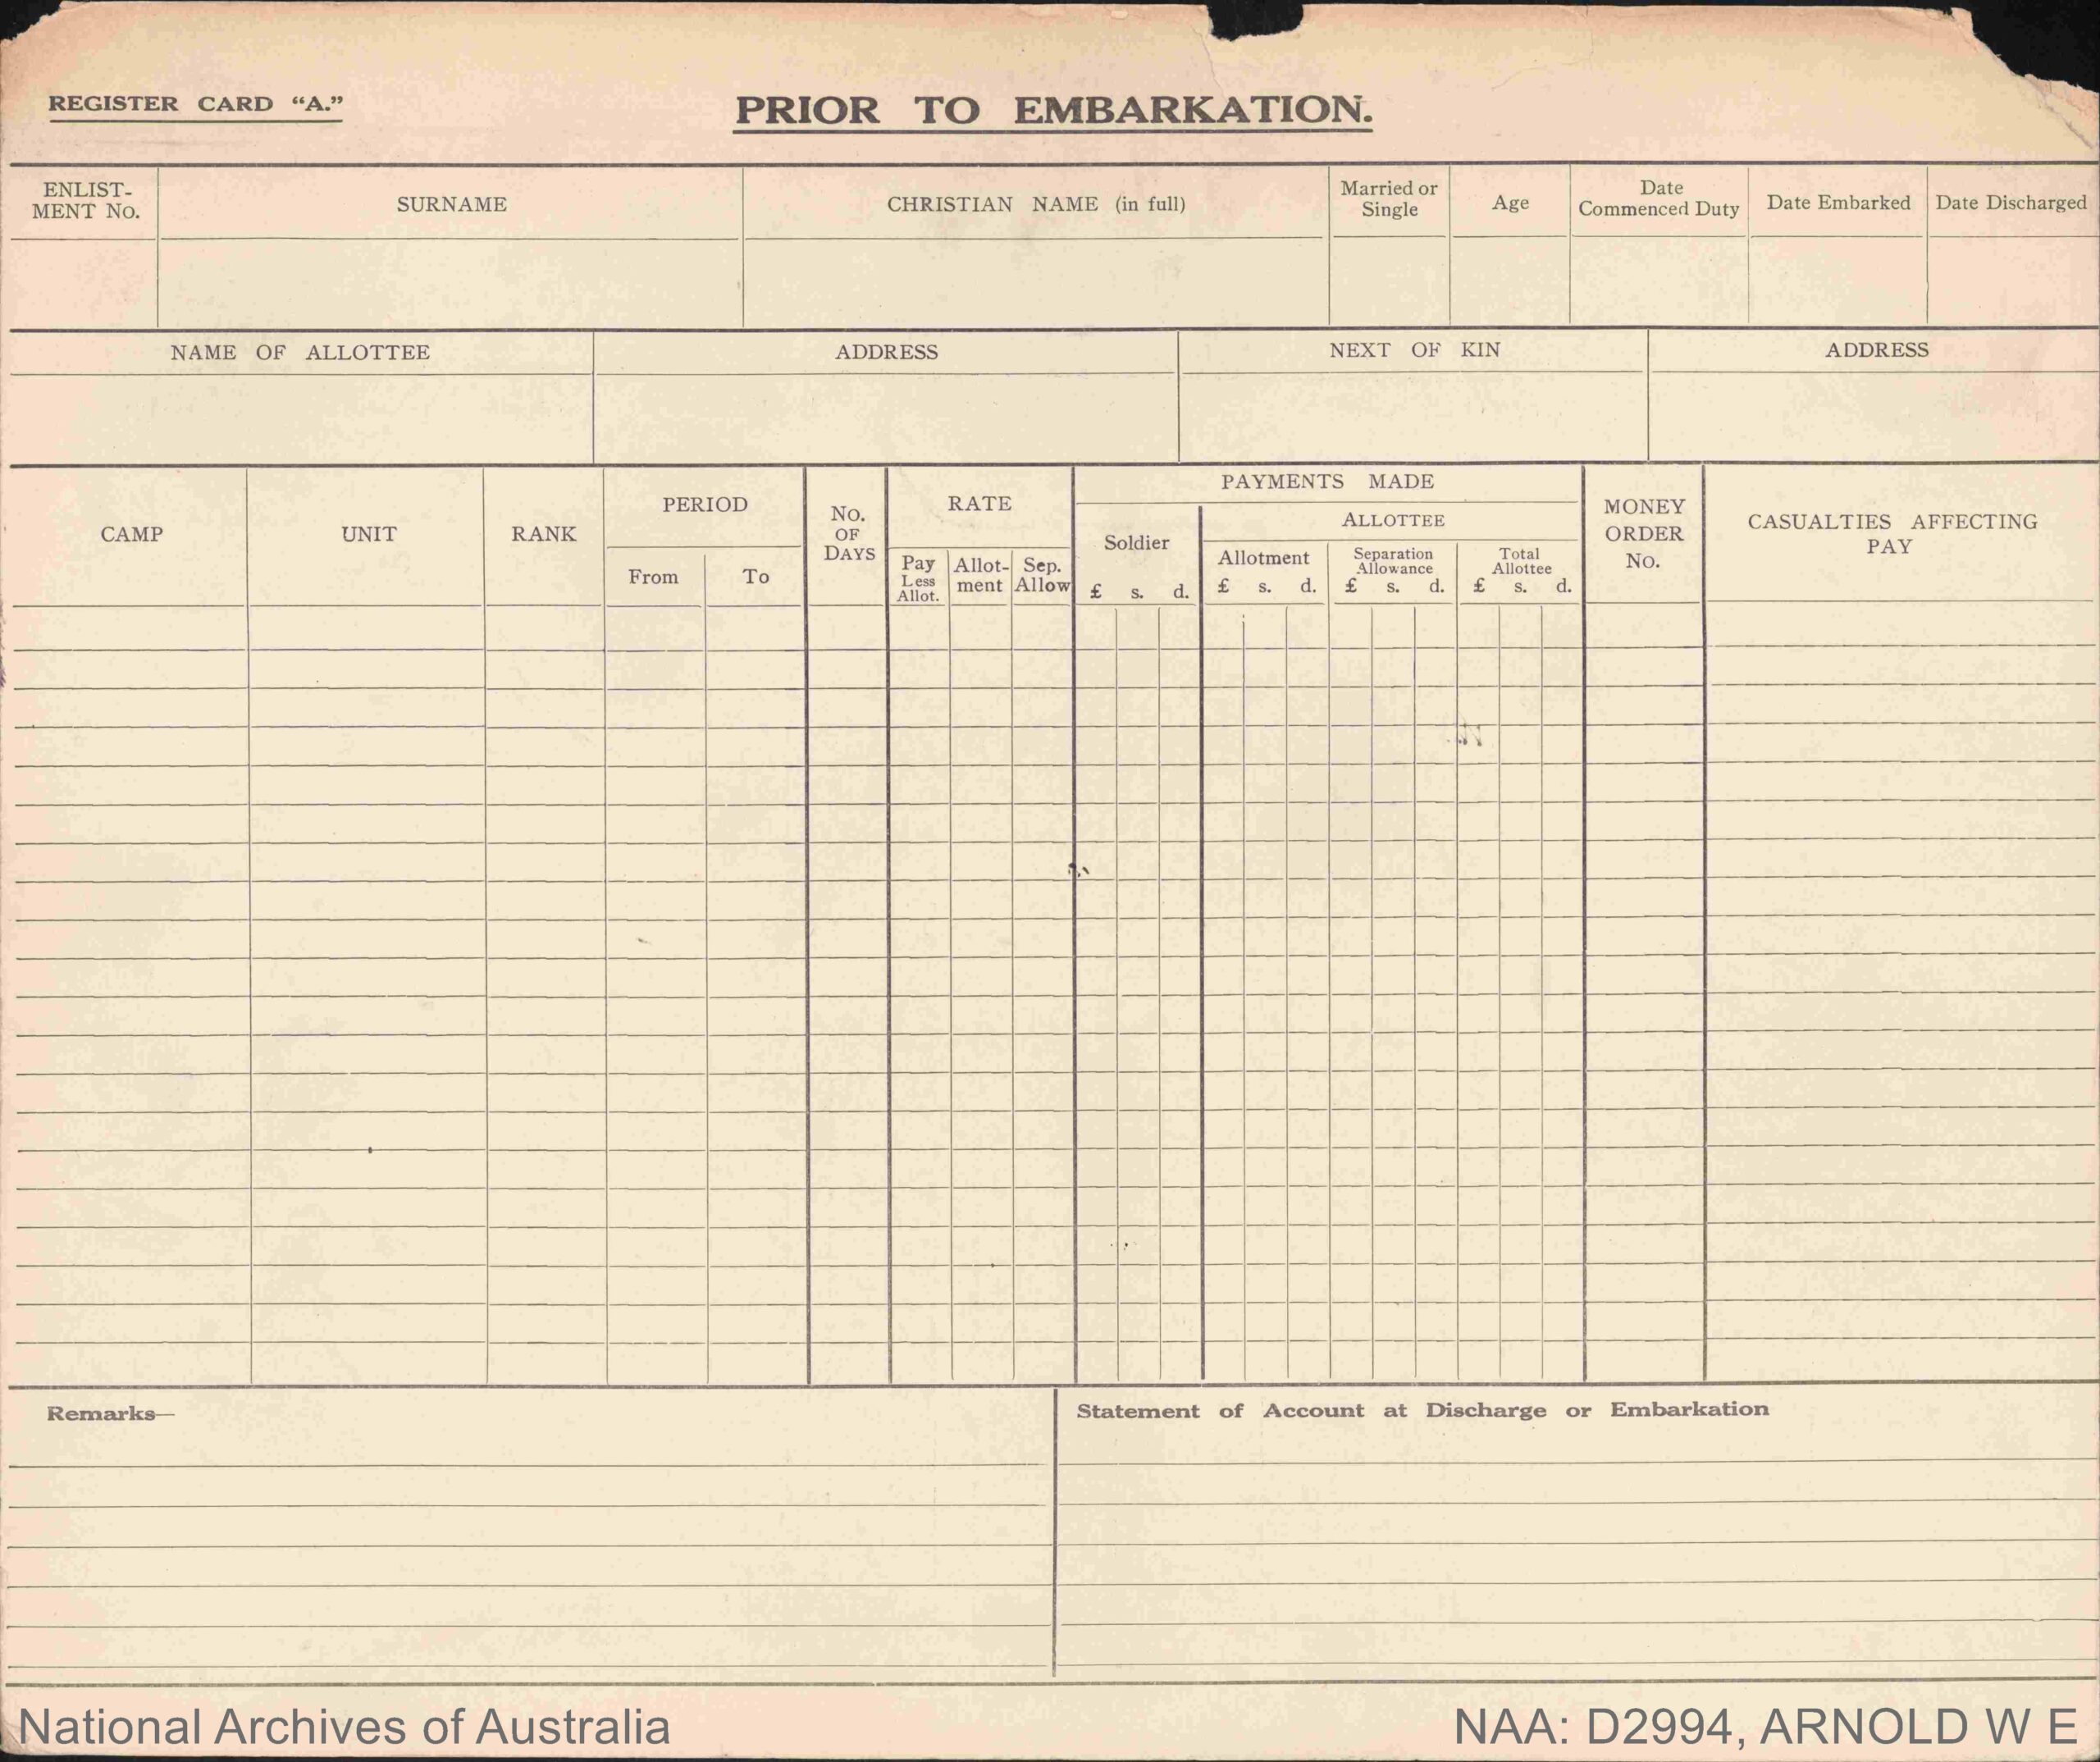 REGISTER CARD “A.”
PRIOR TO EMBARKATION.
ENLIST-
MENT No.
SURNAME
CHRISTIAN NAME (in full)
Married or
Single
Age
Date
Commenced Duty
Date Embarked
Date Discharged
NAME OF ALLOTTEE
ADDRESS
NEXT OF KIN
ADDRESS
CAMP
UNIT
RANK
PERIOD
From
To
NO.
OF
DAYS
RATE
Pay
Less
Allot.
Allot-
ment
Sep.
Allow
PAYMENTS MADE
Soldier
£ s. d.
ALLOTTEE
Allotment
£ s. d.
Separation
Allowance
£ s. d.
Total
Allottee
£ s. d.
MONEY
ORDER
No.
CASUALTIES AFFECTING
PAY
Remarks—
Statement of Account at Discharge or Embarkation
National Archives of Australia
NAA: D2994, ARNOLD W E